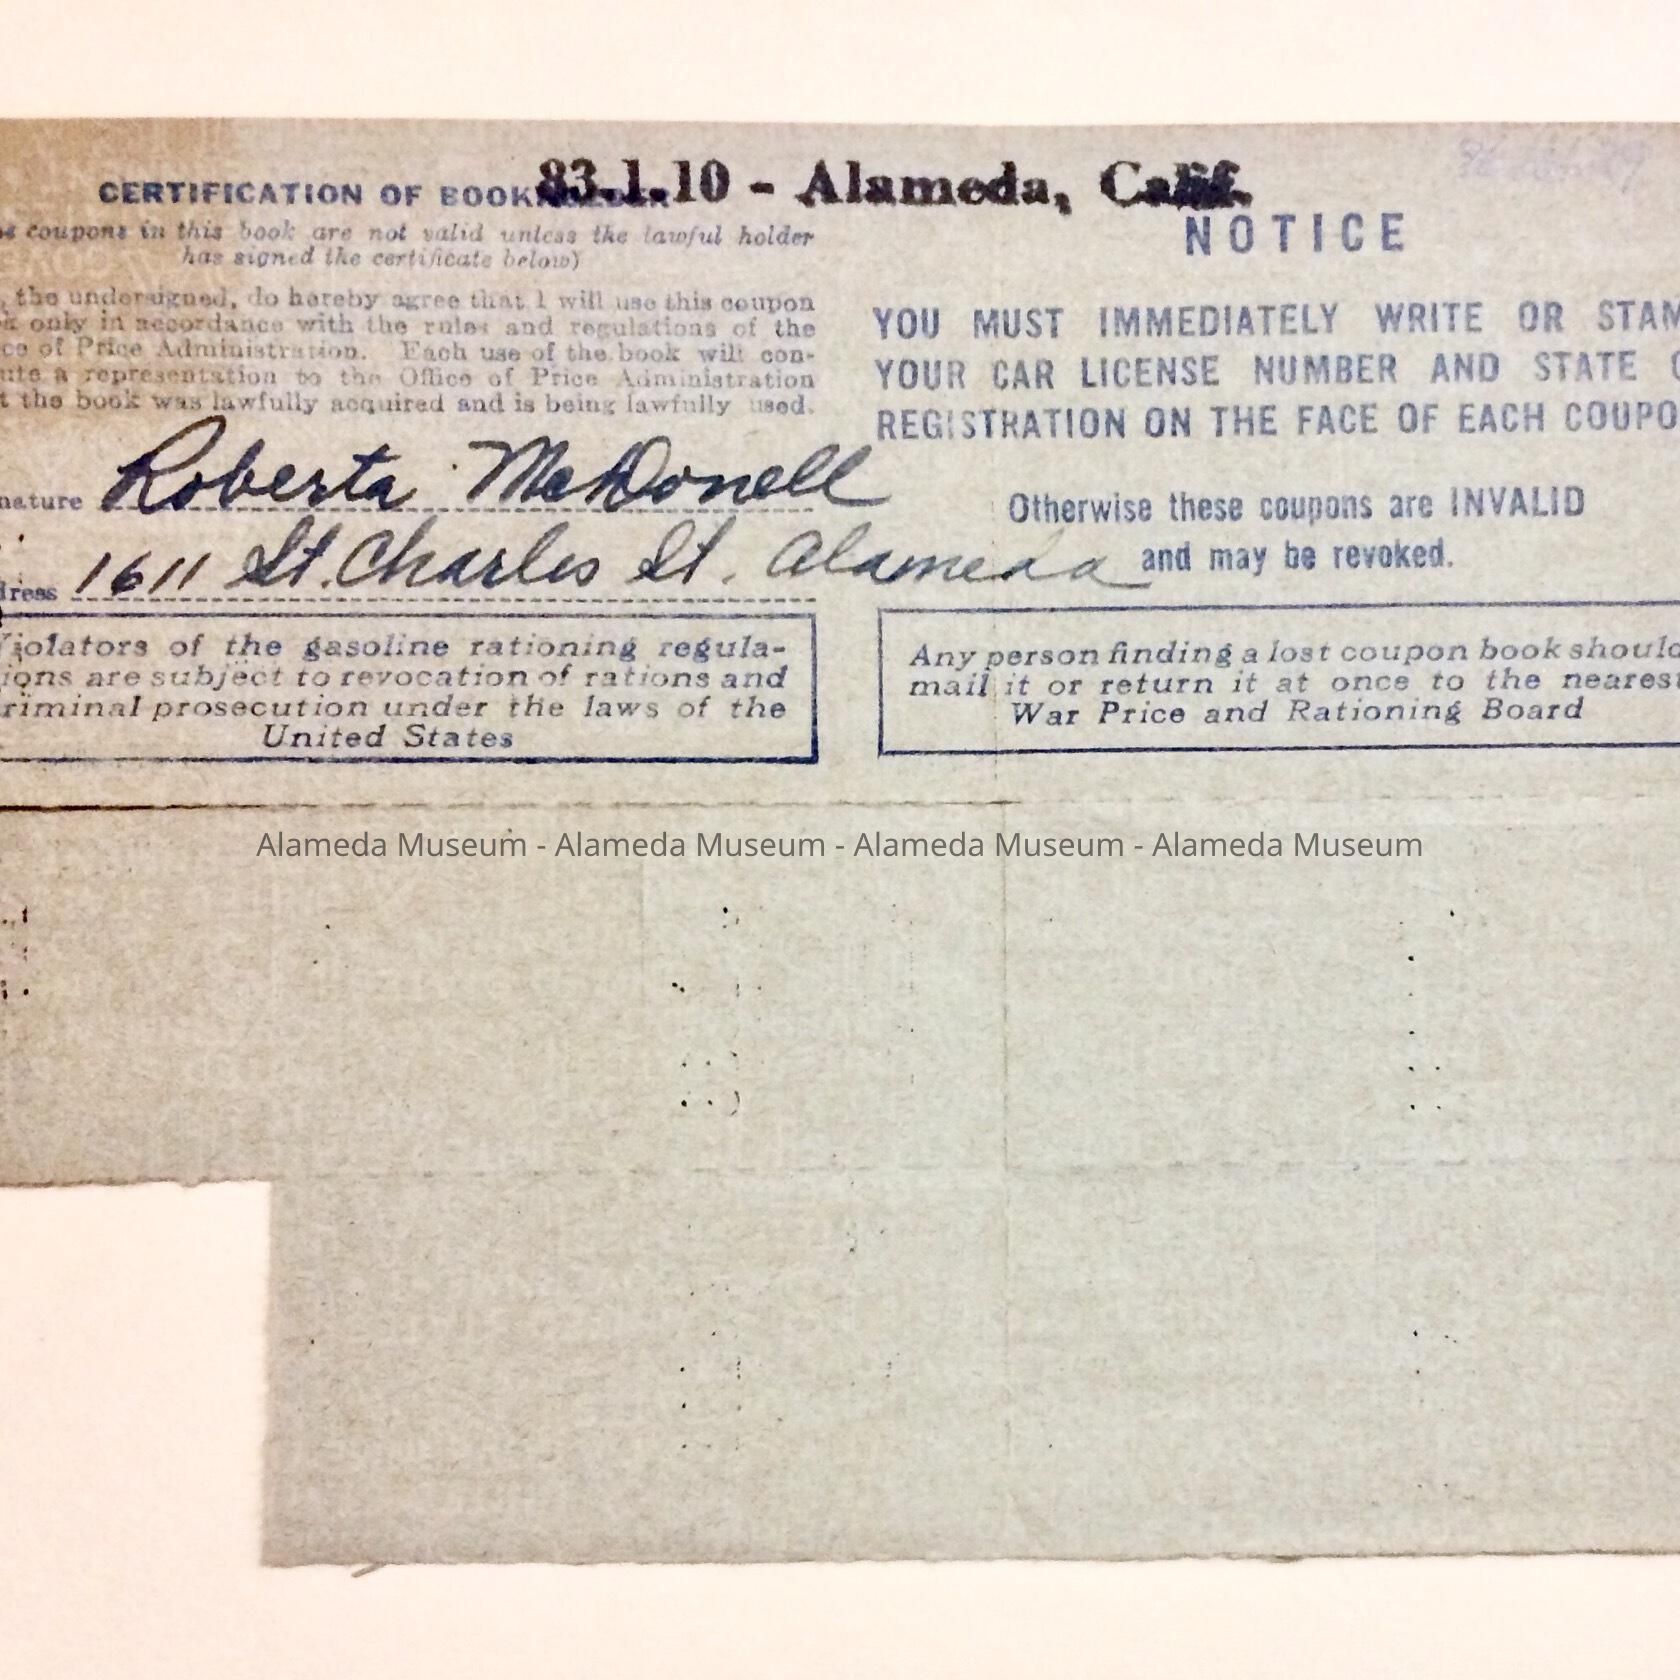 83.1.10 - Alameda, Calif.
CERTIFICATION OF
coupons in this book are not valid unless the lawful holder
has signed the certificate below)
the undersigned, do hereby agree that I will use this coupon
only in accordance with the rules and regulations of the
of Price Administration. Each use of the book will con-
a representation to the Office of Price Administration
the book was lawfully acquired and is being lawfully used.
nature Roberta McDonell
dress 1611 St. Charles St. Alameda
Violators of the gasoline rationing regula-
ions are subject to revocation of rations and
riminal prosecution under the laws of the
United States
NOTICE
YOU MUST IMMEDIATELY WRITE OR STAM
YOUR CAR LICENSE NUMBER AND STATE O
REGISTRATION ON THE FACE OF EACH COUPO
Otherwise these coupons are INVALID
and may be revoked.
Any person finding a lost coupon book should
mail it or return it at once to the nearest
War Price and Rationing Board
Alameda Museum - Alameda Museum - Alameda Museum - Alameda Museum